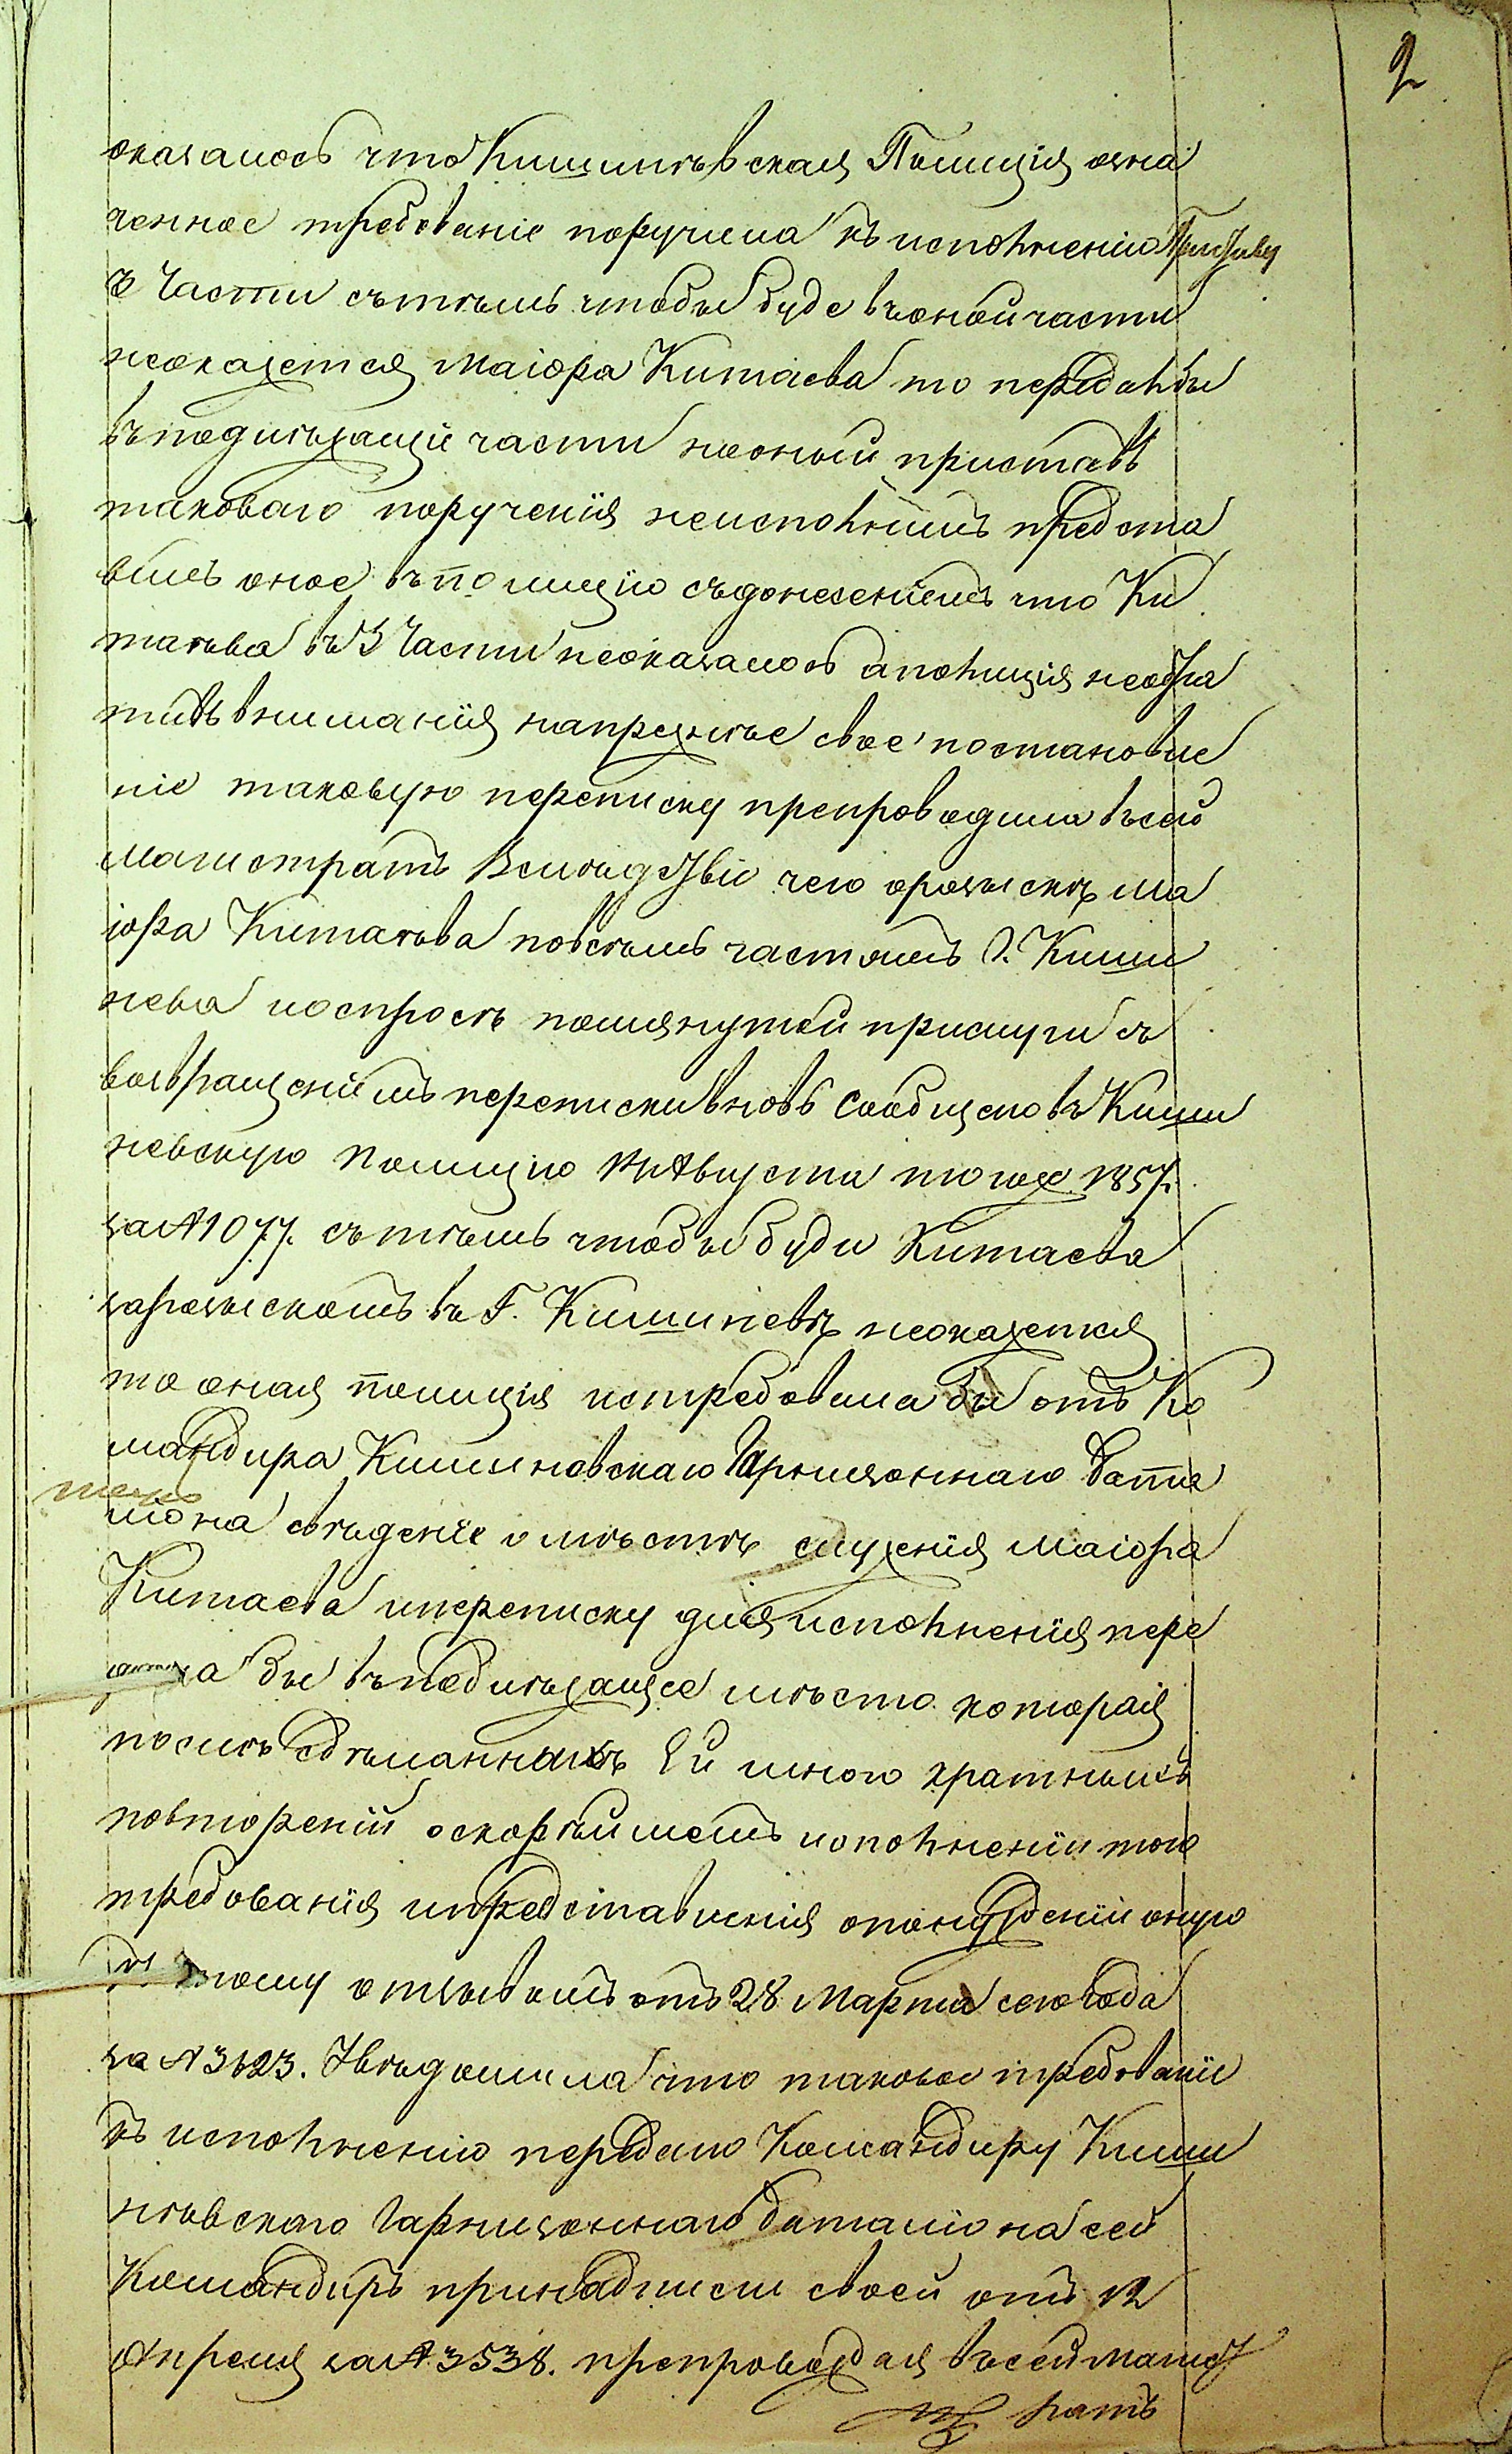 2
оказалось что Кишинѣвская Полиція озна
ченное требованіе поручила къ исполненію Приставу
3 Части съ тѣмъ чтобы буде въ оной части
неокажется Маіора Китаева то передалъ бы
въ подлѣжащіе части но оный приставъ
таковаго порученія неисполнилъ предста
вилъ оное въ полицію съ донесеніемъ что Ки
таѣва въ 3 Части неоказалось а полиція необра
тивъ вниманія напрежнѣе свое постановле
ніе таковую переписку препроводила въ сей
Магистратъ Вслѣдствіи чего орозыскѣ Ма
іора Китаѣва повсѣмъ частямъ Г. Киши
нева и оспросѣ помянутой присяги съ
возвращеніемъ переписки вновь сообщено въ Киши
невскую Полицію Августа того ж 1857.
за № 1077. съ тѣмъ чтобы буди Китаева
зарозыскомъ въ Г. Кишиневѣ неокажется
то оная полиція истребовала бы отъ Ко
мандира Кишиновскаго Гарнизоннаго Бата
ліона свѣденіе о мѣстѣ служенія Маіора
Китаева и переписку для исполненія пере
дала бы въ подлѣжащее мѣсто которая
послѣ сдѣланныхъ Ей много кратныхъ
повтореній о скорѣйшемъ исполненіи того
требованія и представленія опонужденіи оную
къ тому отзывомъ отъ 28 Марта сего года
за № 3623. Увѣдомила что таковое требованіе
къ исполненію передано Командиру Киши
нѣвскаго Гарнизоннаго баталіона сей
Командиръ принадписи своей отъ 12
Апреля за № 3538. препровождая въ сей Магист
ратъ